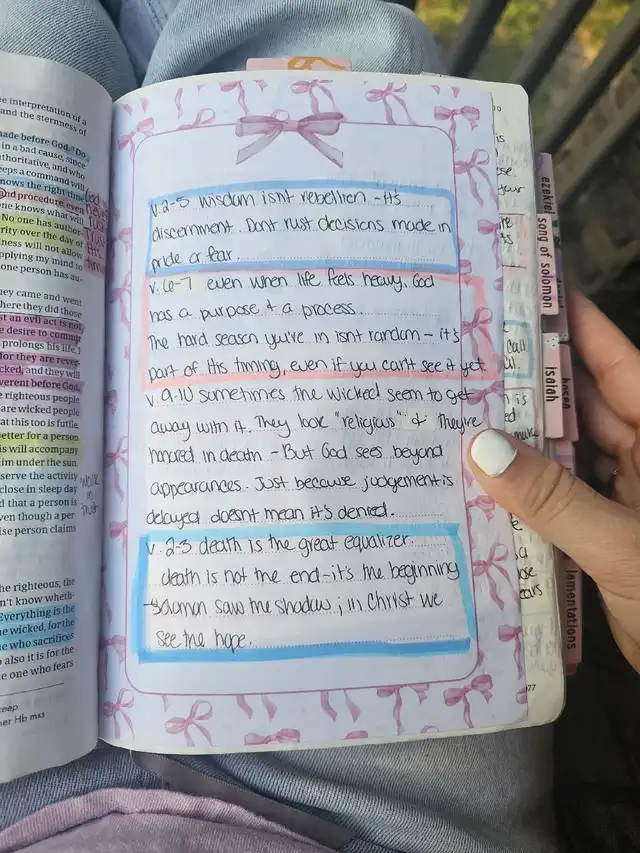 e interpretation of a
and the sternness of
made before God.
in a bad cause, since
thoritative, and who
eeps a command will
nows the right time
and procedure, even
one knows what will
No one has author-
rity over the day of
lness will not allow
pplying my mind to
one person has au-
hey came and went
here they did those
st an evil act is not
e desire to commit
prolongs his life, I
for they are rever-
cked, and they will
verent before God.
e righteous people
are wicked people
at this too is futile.
etter for a person
is will accompany
im under the sun.
serve the activity
close in sleep day
d that a person is
ven though a per-
ise person claims
he righteous, the
n't know wheth-
Everything is the
e wicked, for the
e who sacrifices
o also it is for the
e one who fears
keep
her Hb mss
v.2-5 wisdom isnt rebellion - it's
discernment. Dont rust decisions made in
pride or fear.
v. 6-7 even when life feels heavy, God
has a purpose + a process.
The hard season you're in isnt random - it's
part of His timing, even if you can't see it yet.
v. 9-10 sometimes the wicked seem to get
away with it. They look "religious" & they're
honored in death - But God sees beyond
appearances. Just because judgement is
delayed doesnt mean it's denied.
v. 2-3 death is the great equalizer.
death is not the end - it's the beginning
- Solomon saw the shadow ; in Christ we
see the hope.
77
ezekiel
song of solomon
isaiah
hosea
lamentations